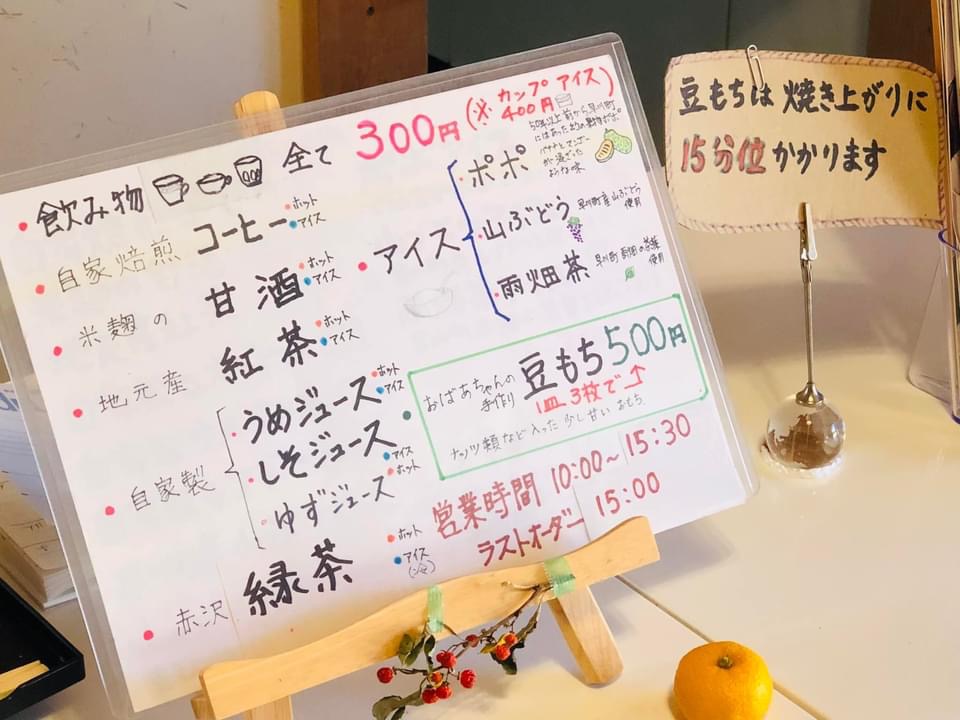 飲み物 全て 300円 (※カップアイス 400円)
自家焙煎 コーヒー ホット アイス
米麹の 甘酒 ホット アイス
地元産 紅茶 ホット アイス
自家製
うめジュース ホット アイス
しそジュース アイス
ゆずジュース ホット
赤沢 緑茶 ホット アイス (冷)
アイス
ポポ
50年以上前から早川町
にはあった幻の果物ポポ
バナナとマンゴー
が混ざった
ような味
山ぶどう 早川町産山ぶどう
使用
雨畑茶 早川町雨畑の茶葉
使用
おばあちゃんの
手作り 豆もち 500円
1皿3枚で
ナッツ類など入った少し甘いおもち
営業時間 10:00~15:30
ラストオーダー 15:00
豆もちは焼き上がりに
15分位かかります